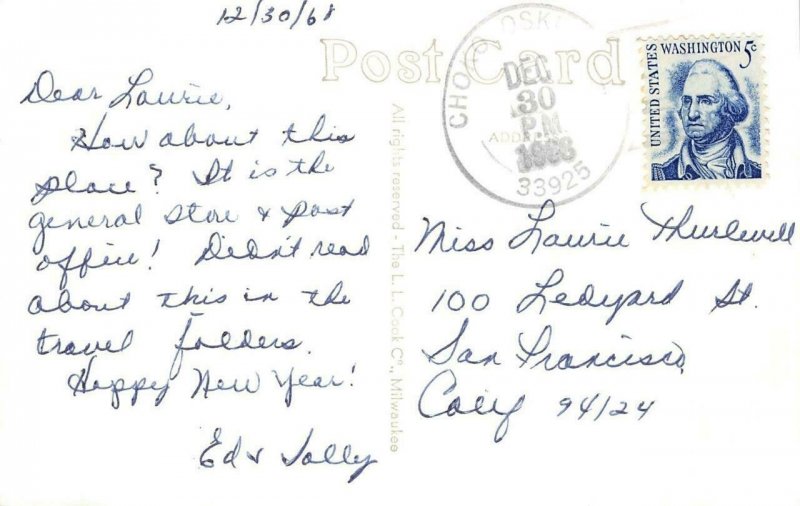 12/30/68
Post Card
Dear Laurie,
How about this
place? It is the
general store & post
office! Didn't read
about this in the
travel folders.
Happy New Year!
Ed & Solly
All rights reserved - The L. L. Cook Co., Milwaukee
CHOKOLOSKEE
DEC
30
PM
33925
UNITED STATES
WASHINGTON 5c
Miss Laurie Thurlwell
100 Ledyard St.
San Francisco,
Calif 94124